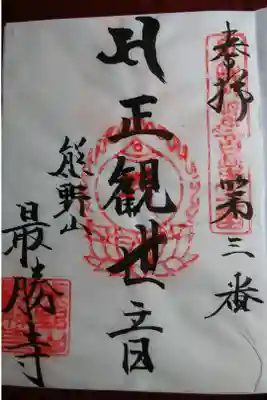 奉拝
第三番
正観世音
熊野山
最勝寺